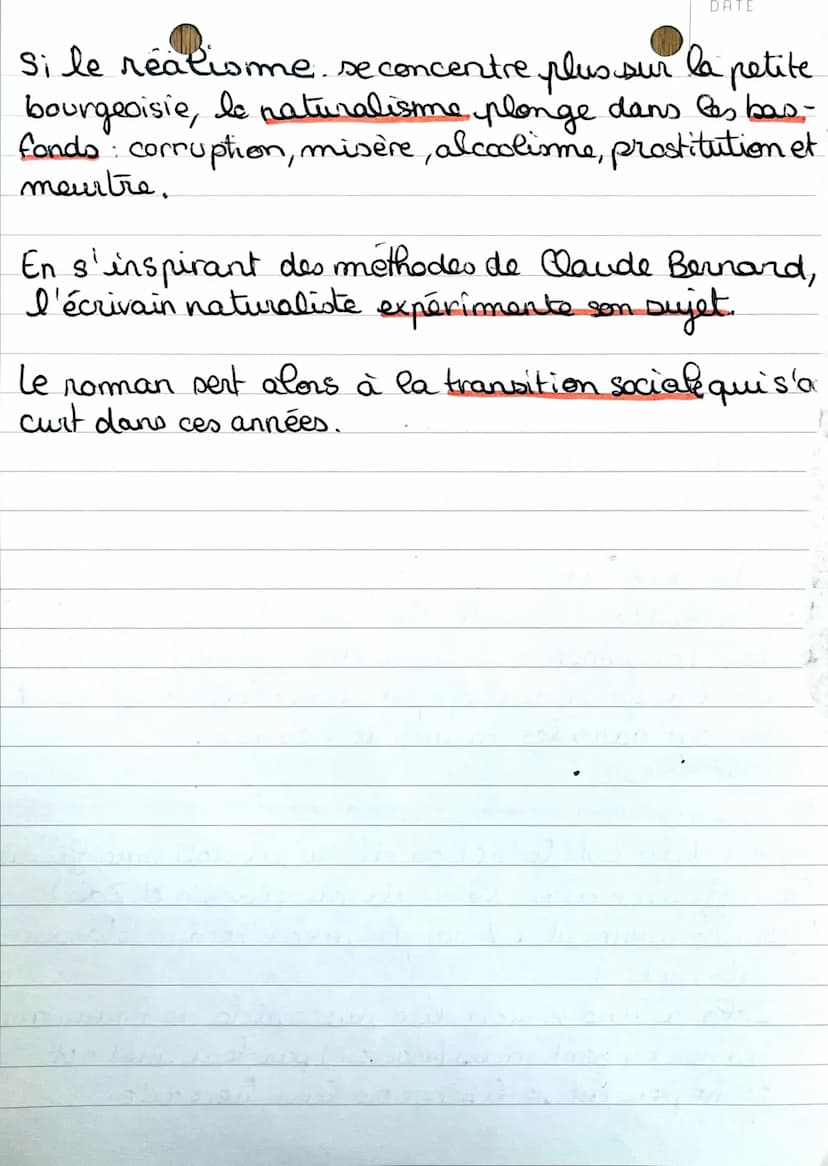 DATE
Si le réalisme se concentre plus sur la petite
bourgeoisie, le naturalisme plonge dans les bas-
fonds : corruption, misère, alcoolisme, prostitution et
meurtre.
En s'inspirant des méthodes de Claude Bernard,
l'écrivain naturaliste expérimente son sujet.
Le roman sert alors à la transition sociale qui s'a
cuit dans ces années.